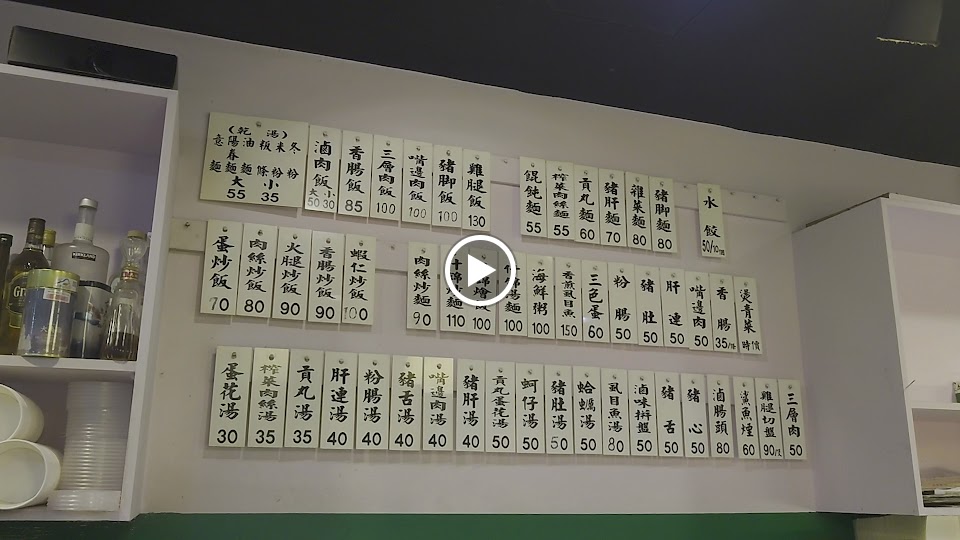 (乾 湯)
意 陽 油 板 米 冬
春
麵 麵 麵 條 粉 粉
大 小
55 35
滷肉飯
大 小
50 30
香腸飯
85
三層肉飯
100
嘴邊肉飯
100
豬腳飯
100
雞腿飯
130
餛飩麵
55
榨菜肉絲麵
55
貢丸麵
60
豬肝麵
70
雜菜麵
80
豬腳麵
80
水餃
50/10個
蛋炒飯
70
肉絲炒飯
80
火腿炒飯
90
香腸炒飯
90
蝦仁炒飯
100
肉絲炒麵
90
什錦炒麵
110
什錦燴飯
100
什錦湯麵
100
海鮮粥
100
香煎虱目魚
150
三色蛋
60
粉腸
50
豬肚
50
肝連
50
嘴邊肉
50
香腸
35/條
燙青菜
時價
蛋花湯
30
榨菜肉絲湯
35
貢丸湯
35
肝連湯
40
粉腸湯
40
豬舌湯
40
嘴邊肉湯
40
豬肝湯
40
貢丸蛋花湯
50
蚵仔湯
50
豬肚湯
50
蛤蠣湯
50
虱目魚湯
80
滷味拼盤
50
豬舌
50
豬心
50
滷腸頭
80
鯊魚煙
60
雞腿切盤
90/支
三層肉
50
KIRKLAND